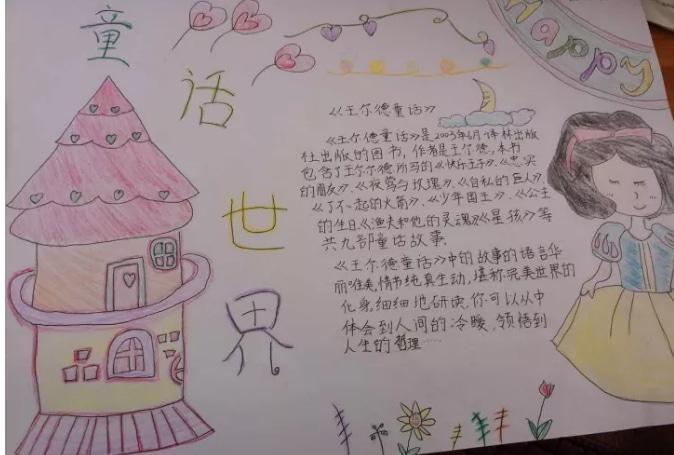 童话世界
Happy
《王尔德童话》
《王尔德童话》是2003年6月译林出版
社出版的图书，作者是王尔德，本书
包含了王尔尔德所写的《快乐王子》、《忠实
的朋友》、《夜莺与玫瑰》、《自私的巨人》、
《了不起的火箭》、《少年国王》、《公主
的生日《渔夫和他的灵魂》《星孩》等
共九部童话故事.
《王尔德童话》中的故事的语言华
丽唯美,情节纯真生动,堪称完美世界的
化身,细细地研读,你可以从中
体会到人间的冷暖,领悟到
人生的哲理……